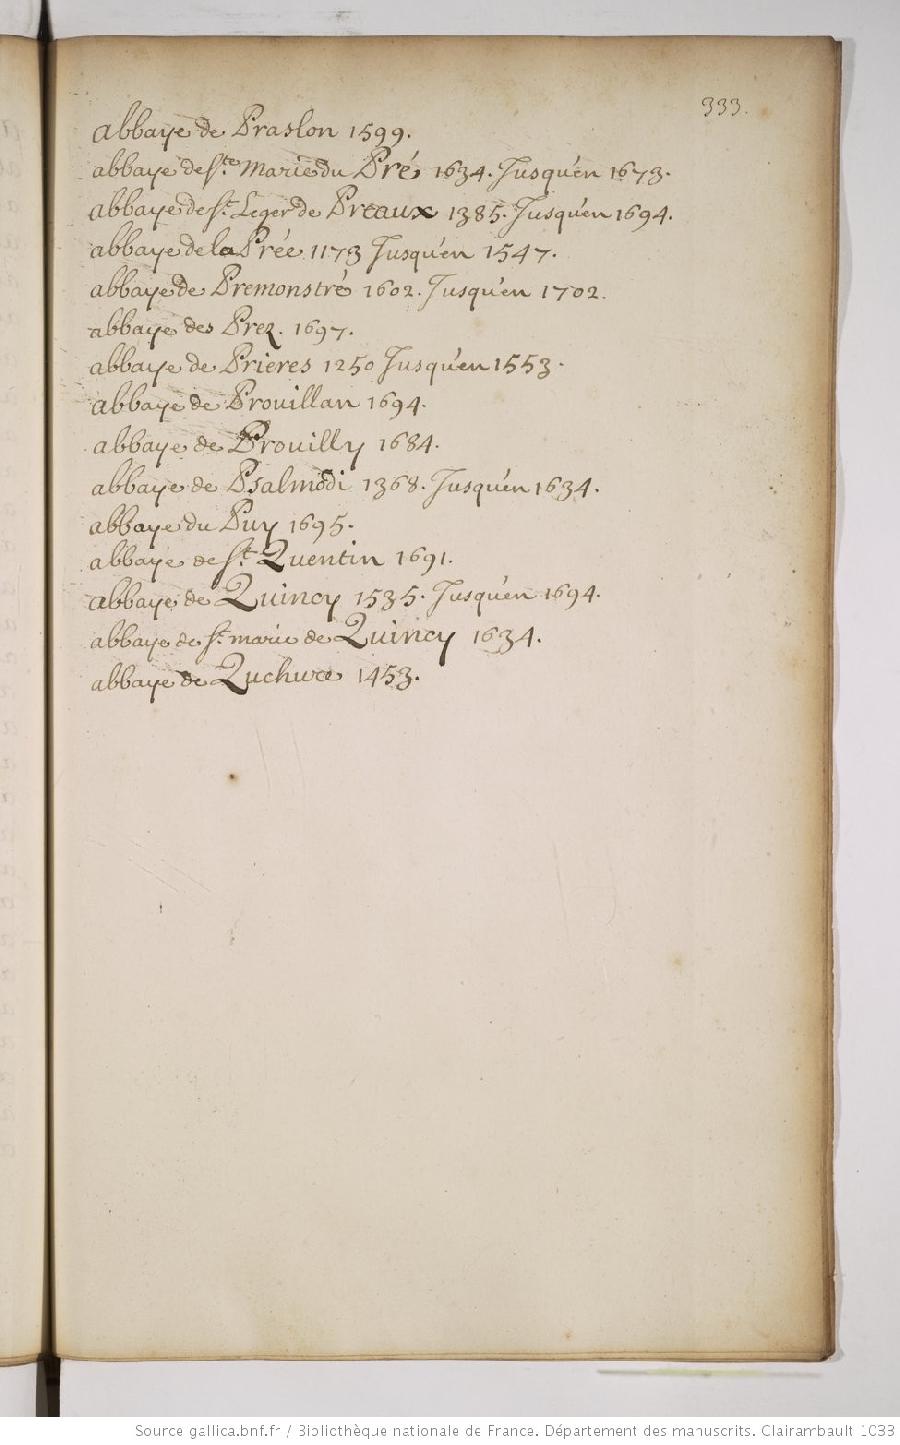 333.
abbaye de Praslon 1599.
abbaye de Ste. Marie du Pré 1634. Jusqu'en 1673.
abbaye de St. Leger de Preaux 1385. Jusqu'en 1694.
abbaye de la Prée 1173 Jusqu'en 1547.
abbaye de Premonstré 1602. Jusqu'en 1702.
abbaye des Prez. 1697.
abbaye de Prieres 1250 Jusqu'en 1553.
abbaye de Prouillan 1694.
abbaye de Prouilly 1684.
abbaye de Psalmodi 1368. Jusqu'en 1634.
abbaye du Puy 1695.
abbaye de St. Quentin 1691.
abbaye de Quincy 1535. Jusqu'en 1694.
abbaye de St. marie de Quincy 1634.
abbaye de Quchure 1453.
Source gallica.bnf.fr / Bibliothèque nationale de France. Département des manuscrits. Clairambault 1033